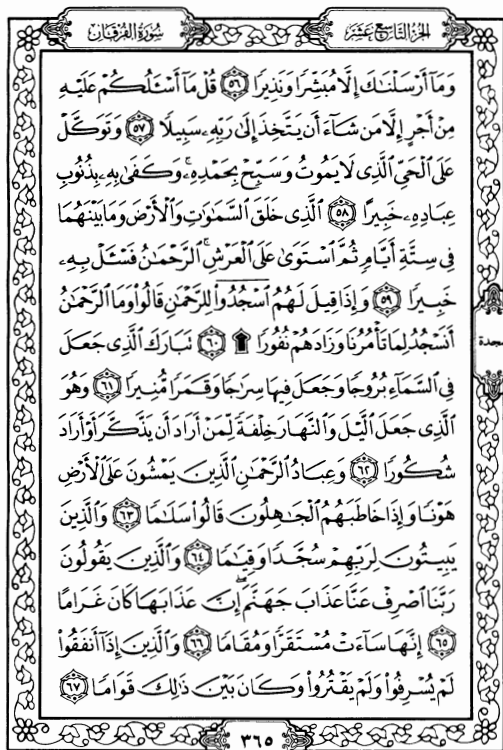 سُورَةُ الفُرْقَان
الجُزْءُ التَّاسِعَ عَشَرَ
وَمَآ أَرْسَلْنَٰكَ إِلَّا مُبَشِّرًا وَنَذِيرًا ٥٦ قُلْ مَآ أَسْـَٔلُكُمْ عَلَيْهِ
مِنْ أَجْرٍ إِلَّا مَن شَآءَ أَن يَتَّخِذَ إِلَىٰ رَبِّهِۦ سَبِيلًا ٥٧ وَتَوَكَّلْ
عَلَى ٱلْحَيِّ ٱلَّذِى لَا يَمُوتُ وَسَبِّحْ بِحَمْدِهِۦ ۚ وَكَفَىٰ بِهِۦ بِذُنُوبِ
عِبَادِهِۦ خَبِيرًا ٥٨ ٱلَّذِى خَلَقَ ٱلسَّمَٰوَٰتِ وَٱلْأَرْضَ وَمَا بَيْنَهُمَا
فِى سِتَّةِ أَيَّامٍ ثُمَّ ٱسْتَوَىٰ عَلَى ٱلْعَرْشِ ۚ ٱلرَّحْمَٰنُ فَسْـَٔلْ بِهِۦ
خَبِيرًا ٥٩ وَإِذَا قِيلَ لَهُمُ ٱسْجُدُوا۟ لِلرَّحْمَٰنِ قَالُوا۟ وَمَا ٱلرَّحْمَٰنُ
أَنَسْجُدُ لِمَا تَأْمُرُنَا وَزَادَهُمْ نُفُورًا ۩ ٦٠ تَبَارَكَ ٱلَّذِى جَعَلَ
سجدة
فِى ٱلسَّمَآءِ بُرُوجًا وَجَعَلَ فِيهَا سِرَٰجًا وَقَمَرًا مُّنِيرًا ٦١ وَهُوَ
ٱلَّذِى جَعَلَ ٱلَّيْلَ وَٱلنَّهَارَ خِلْفَةً لِّمَنْ أَرَادَ أَن يَذَّكَّرَ أَوْ أَرَادَ
شُكُورًا ٦٢ وَعِبَادُ ٱلرَّحْمَٰنِ ٱلَّذِينَ يَمْشُونَ عَلَى ٱلْأَرْضِ
هَوْنًا وَإِذَا خَاطَبَهُمُ ٱلْجَٰهِلُونَ قَالُوا۟ سَلَٰمًا ٦٣ وَٱلَّذِينَ
يَبِيتُونَ لِرَبِّهِمْ سُجَّدًا وَقِيَٰمًا ٦٤ وَٱلَّذِينَ يَقُولُونَ
رَبَّنَا ٱصْرِفْ عَنَّا عَذَابَ جَهَنَّمَ ۖ إِنَّ عَذَابَهَا كَانَ غَرَامًا
٦٥ إِنَّهَا سَآءَتْ مُسْتَقَرًّا وَمُقَامًا ٦٦ وَٱلَّذِينَ إِذَآ أَنفَقُوا۟
لَمْ يُسْرِفُوا۟ وَلَمْ يَقْتُرُوا۟ وَكَانَ بَيْنَ ذَٰلِكَ قَوَامًا ٦٧
٣٦٥